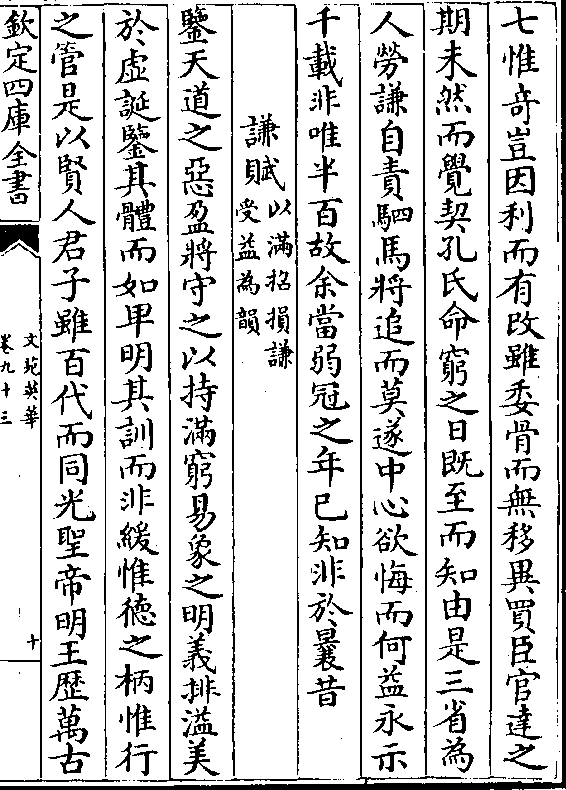 七惟奇豈因利而有改雖委骨而無移異買臣官達之
期未然而覺契孔氏命窮之日旣至而知由是三省為
人勞謙自責駟馬將追而莫遂中心欲悔而何益永示
千載非唯半百故余當弱冠之年已知非於曩昔
謙賦以滿招損謙
受益為韻
鑒天道之惡盈將守之以持滿窮易象之明義排溢美
於虛誕鑒其體而如卑明其訓而非緩惟德之柄惟行
之管是以賢人君子雖百代而同光聖帝明王歷萬古
欽定四庫全書
文苑英華
卷九十三
十